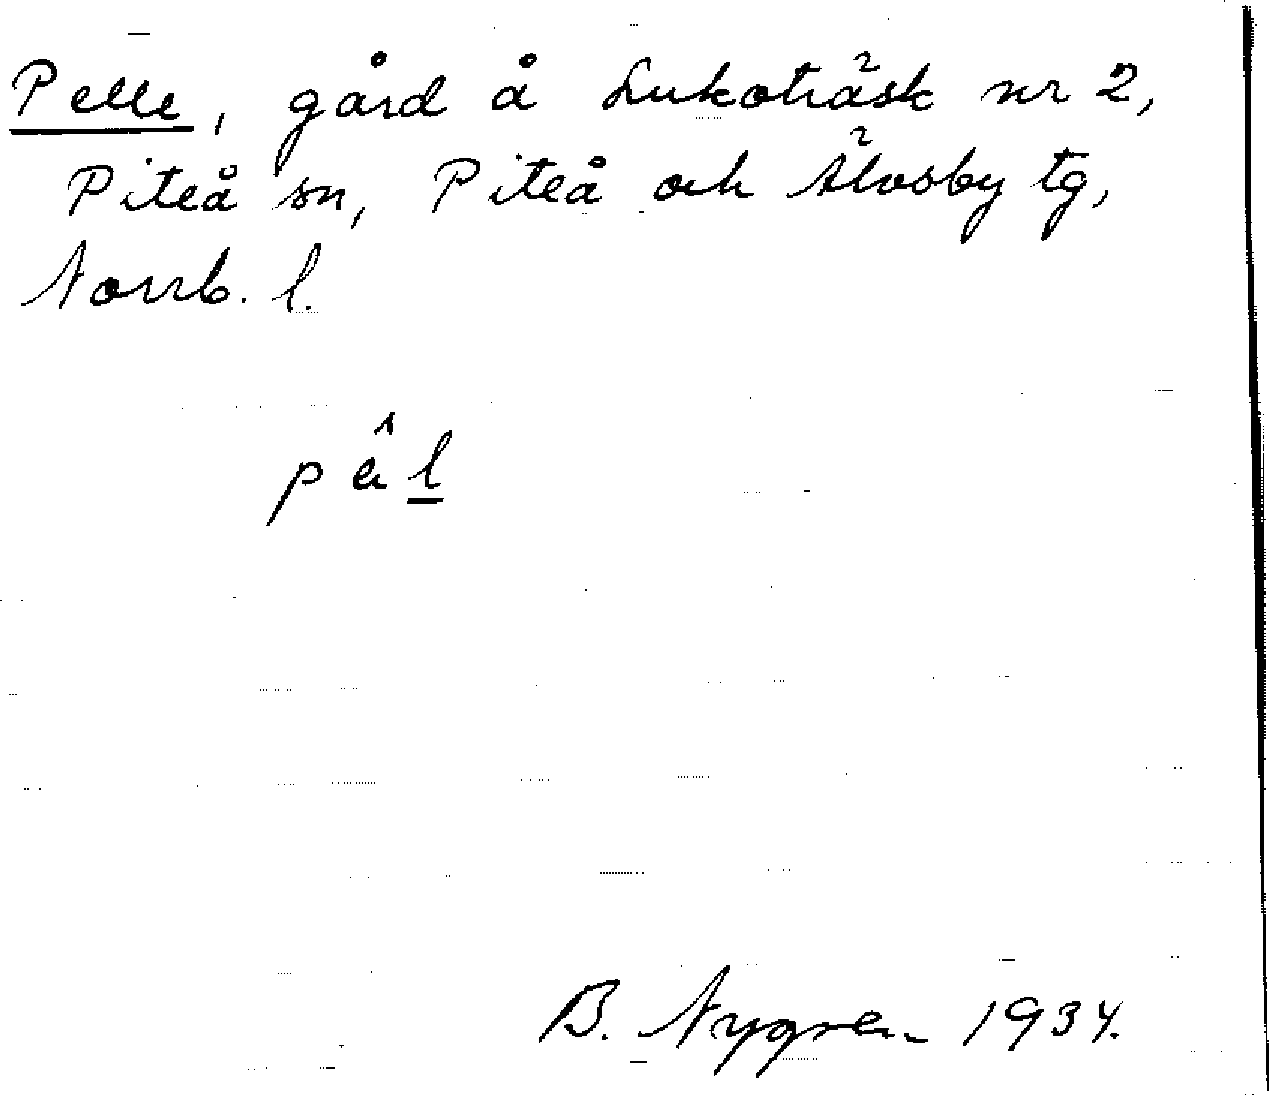 Pelle, gård å Lukoträsk nr 2,
Piteå sn, Piteå och Älvsby tg,
Norrb. l.
B. Nygren 1934.